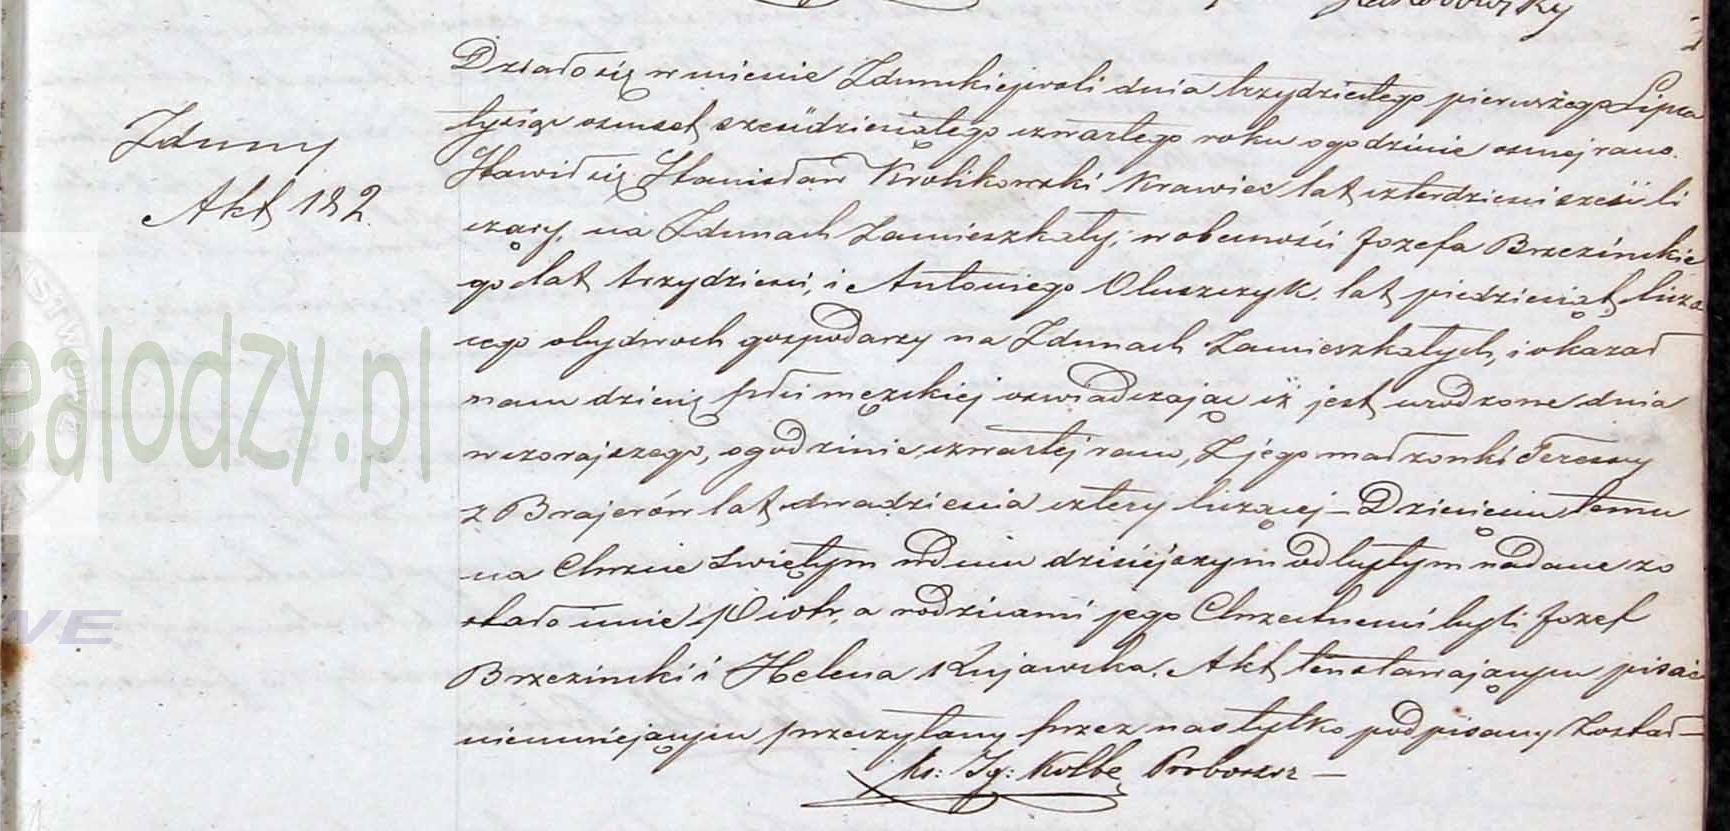 Działo się w mieście Zduńskiejwoli dnia trzydziestego pierwszego Lipca
Zduny
tysiąc osmset sześdziesiątego czwartego roku o godzinie osmej rano.
Akt 182.
Stawił się Stanisław Krolikowski Krawiec lat czterdzieści sześć li
czący, na Zdunach Zamieszkały; w obecności Jozefa Brzezinskie
go lat trzydzieści, i Antoniego Oluszczyk. lat piedziesiąt licza
cego obydwoch gospodarzy na Zdunach Zamieszkałych, i okazał
nam dziecię płci męzkiej oswiadczając iż jest urodzone dnia
wczorajszego, o godzinie czwartej rano, Z jego małzonki Teressy
z Brajerów lat dwadzieścia cztery liczącej – Dziecięciu temu
na Chrzcie Swiętym w dniu dzisiejszym odbytym nadane zo
stało imie Piotr, a rodzicami jego Chrzestnemi byli Jozef
Brzezinski i Helena Kujawska. Akt ten stawającym pisać
nieumiejącym przeczytany przez nas tylko podpisany Został –
Ks: Ig: Kolbe Proboszcz –
ealodzy.pl
STWO
WE